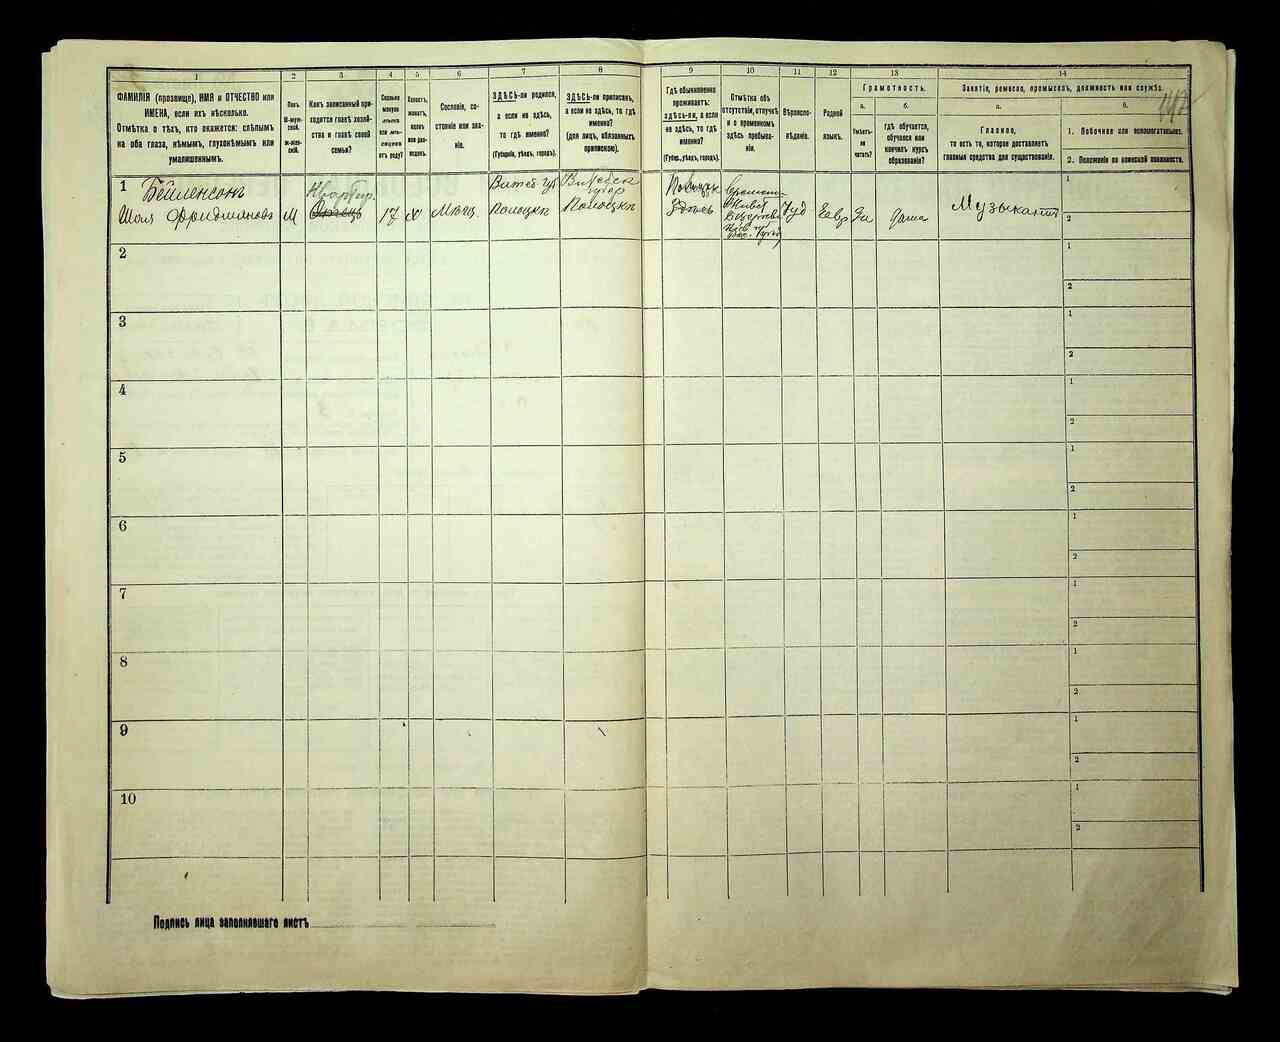 1 2 3 4 5 6 7 8 9 10 11 12 13 14
ФАМИЛІЯ (прозвище), ИМЯ и ОТЧЕСТВО или
ИМЕНА, если ихъ нѣсколько.
Отмѣтка о тѣхъ, кто окажется: слѣпымъ
на оба глаза, нѣмымъ, глухонѣмымъ или
умалишеннымъ.
Полъ.
М-муж-
ской.
Ж-жен-
скій.
Какъ записанный при-
ходится главѣ хозяй-
ства и главѣ своей
семьи?
Сколько
минуло
лѣтъ
или мѣ-
сяцевъ
отъ роду?
Холостъ,
женатъ,
вдовъ
или раз-
веденъ.
Сословіе, со-
стояніе или зва-
ніе.
ЗДѢСЬ-ли родился,
а если не здѣсь,
то гдѣ именно?
(Губернія, уѣздъ, городъ).
ЗДѢСЬ-ли приписанъ,
а если не здѣсь, то гдѣ
именно?
(для лицъ, обязанныхъ
припискою).
Гдѣ обыкновенно
проживаетъ:
здѣсь-ли, а если
не здѣсь, то гдѣ
именно?
(Губерн., уѣздъ, городъ).
Отмѣтка объ
отсутствіи, отлучкѣ
и о временномъ
здѣсь пребыва-
ніи.
Вѣроиспо-
вѣданіе.
Родной
языкъ.
Грамотность.
а.
Умѣетъ-
ли
читать?
б.
гдѣ обучается,
обучался или
кончилъ курсъ
образованія?
Занятіе, ремесло, промыселъ, должность или служба.
а.
Главное,
то есть то, которое доставляетъ
главныя средства для существованія.
б.
1. Побочное или вспомогательное.
2. Положеніе по воинской повинности.
1 Бейленсонъ Квартир. Витеб губ Витебск губер 1
Шоля Фридмановъ М 17 х Мѣщ. Полоцкъ Полоцкъ Здѣсь Іуд Евр Да дома Музыкантъ 2
2 1
2
3 1
2
4 1
2
5 1
2
6 1
2
7 1
2
8 1
2
9 1
2
10 1
2
Подпись лица заполнявшаго листъ